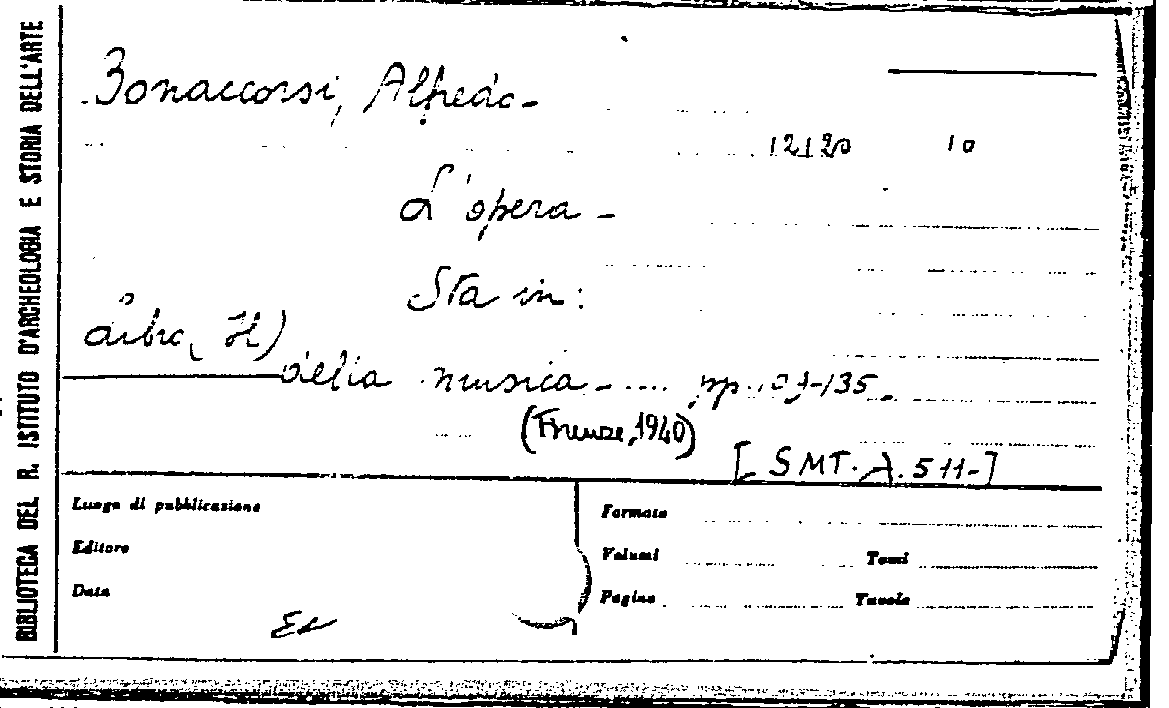 BIBLIOTECA DEL R. ISTITUTO D'ARCHEOLOGIA E STORIA DELL'ARTE
Bonaccorsi, Alfredo-
10
L'opera -
Sta in:
Libro (Il)
della musica - .... pp.
(Firenze, 1940)
[SMT. A. 511-]
Luogo di pubblicazione
Editore
Data
Formato
Volumi Tomi
Pagine Tavole